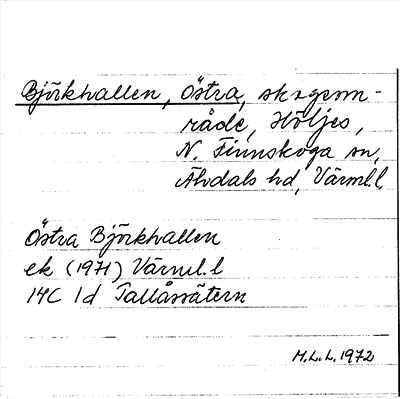 Björkhallen, Östra, skogsom-
råde, Höljes,
N. Finnskoga sn,
Älvdals hd, Värml. l.
Östra Björkhallen
ek (1971) Värml. l
14C 1d Tallåssätern
M.L.L. 1972